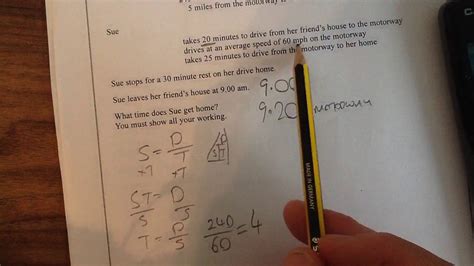 5 miles from the motorway
Sue
takes 20 minutes to drive from her friend's house to the motorway
drives at an average speed of 60 mph on the motorway
takes 25 minutes to drive from the motorway to her home
Sue stops for a 30 minute rest on her drive home.
Sue leaves her friend's house at 9.00 am. 9.00
What time does Sue get home? 9.20 MOTORWAY
You must show all your working.
S = D/T
×T ×T
D
S T
ST = D
S S
T = D/S 240/60 = 4
MADE IN GERMANY